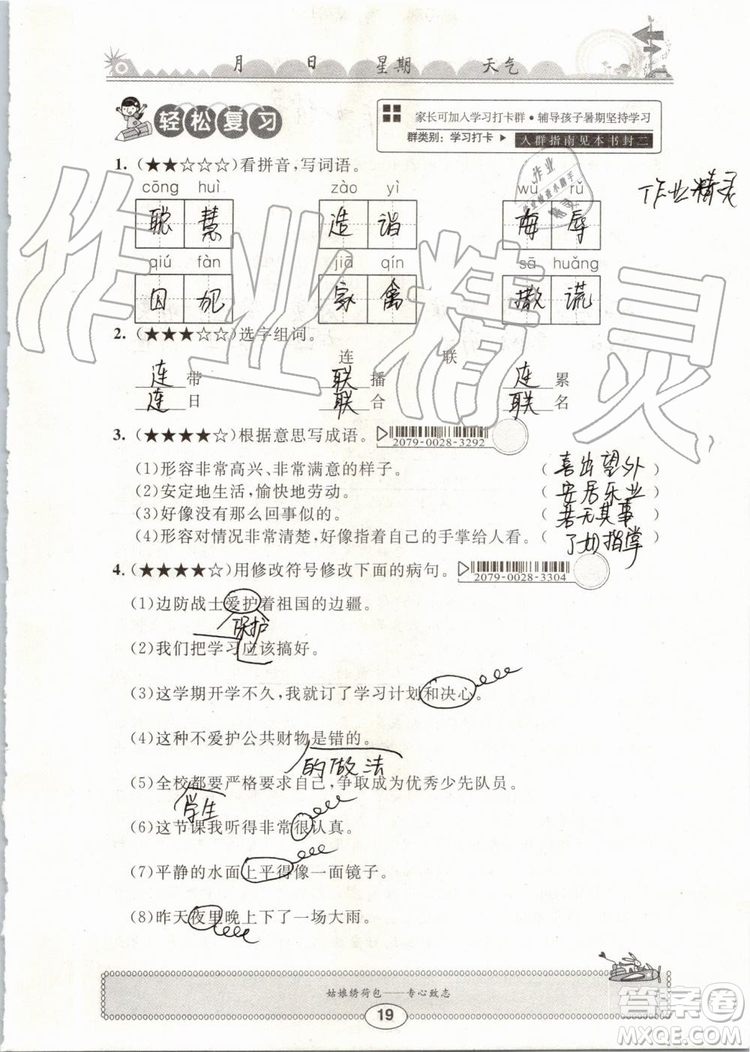 月 日 星期 天气
轻松复习
家长可加入学习打卡群·辅导孩子暑期坚持学习
群类别：学习打卡▶ 入群指南见本书封二
1.(★★☆☆☆)看拼音,写词语。
cōng huì zào yì wǔ rǔ
聪 慧 造 诣 侮 辱
作业精灵
qiú fàn jiā qín sā huǎng
囚 犯 家 禽 撒 谎
2.(★★★☆☆)选字组词。
连 联
连带 联播 连累
连日 联合 联名
3.(★★★★☆)根据意思写成语。 2079-0028-3292
(1)形容非常高兴、非常满意的样子。 (喜出望外)
(2)安定地生活,愉快地劳动。 (安居乐业)
(3)好像没有那么回事似的。 (若无其事)
(4)形容对情况非常清楚,好像指着自己的手掌给人看。 (了如指掌)
4.(★★★★☆)用修改符号修改下面的病句。 2079-0028-3304
(1)边防战士爱护着祖国的边疆。
保护
(2)我们把学习应该搞好。
(3)这学期开学不久,我就订了学习计划和决心。
(4)这种不爱护公共财物是错的。
的做法
(5)全校都要严格要求自己,争取成为优秀少先队员。
学生
(6)这节课我听得非常很认真。
(7)平静的水面上平得像一面镜子。
(8)昨天夜里晚上下了一场大雨。
姑娘绣荷包——专心致志
19
作业精灵
答案圈
MXQE.COM